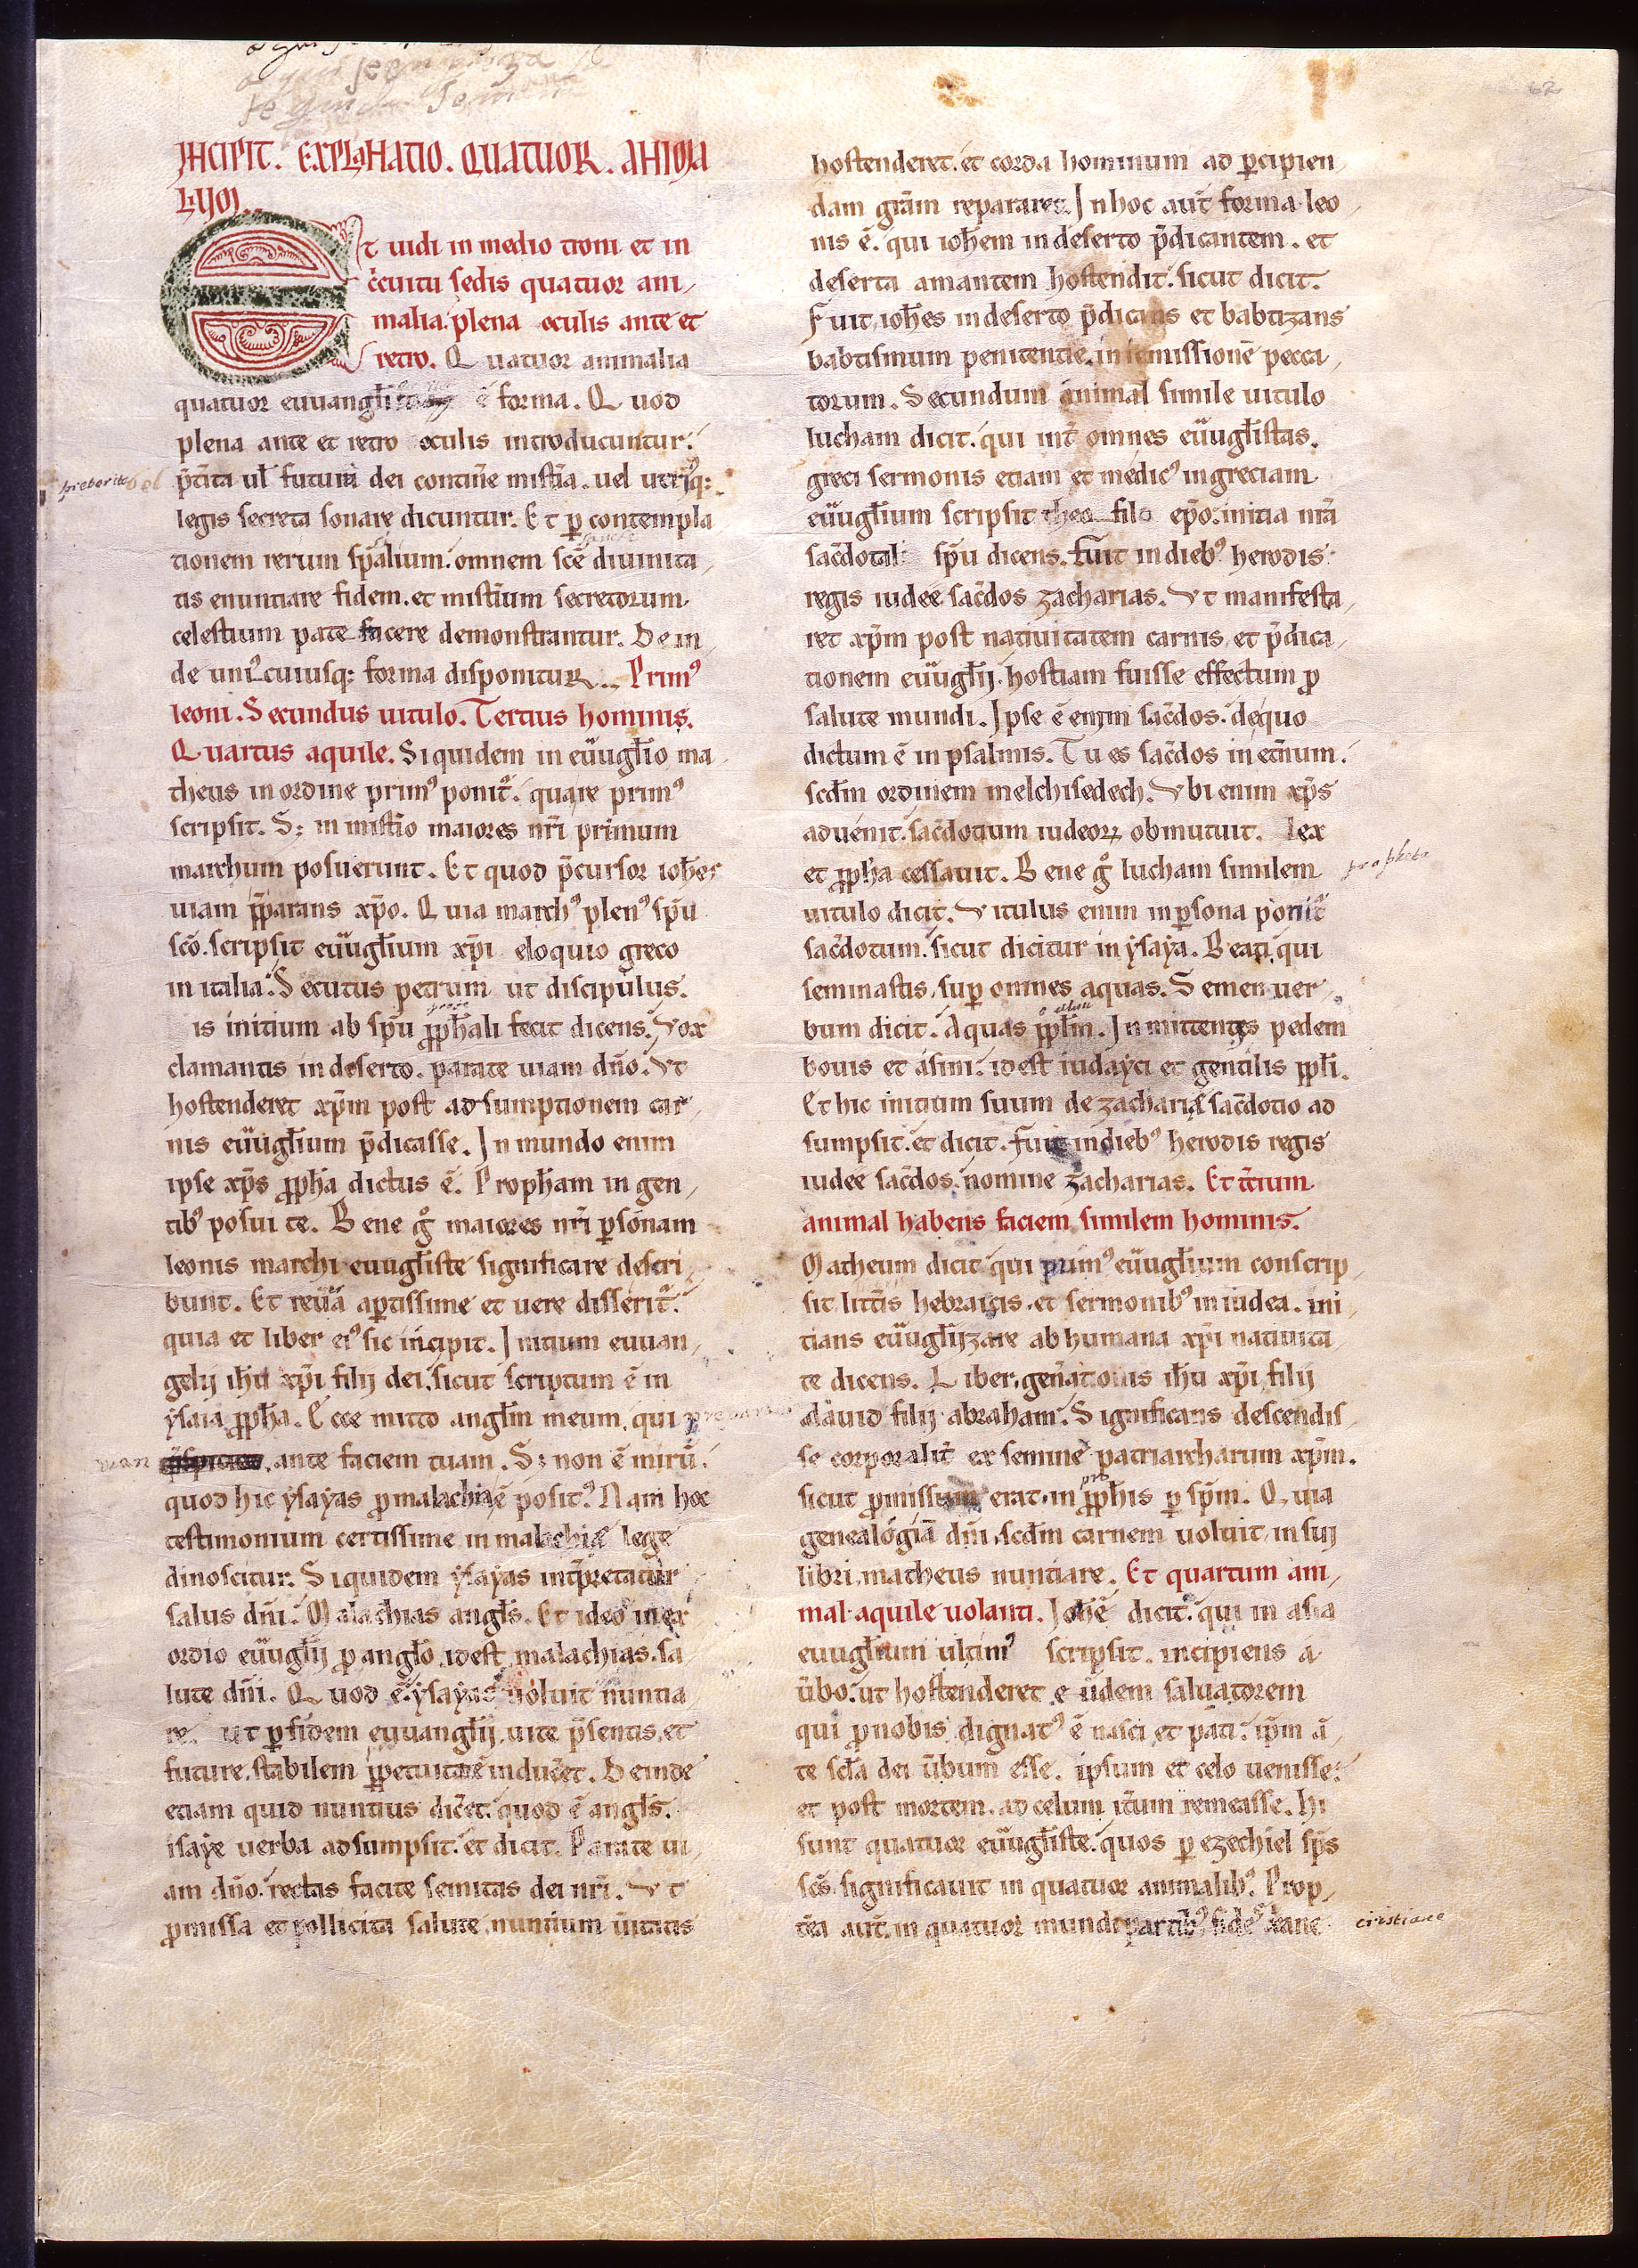 INCIPIT. EXPLANATIO. QUATUOR. ANIMA
LIUM.
Et uidi in medio troni et in
c̄cuitu sedis quatuor ani,
malia. plena oculis ante et
retro. Quatuor animalia
quatuor euuangl̄i ē forma. Quod
plena ante et retro oculis introducuntur.
p̄t̄ita ul̄ futura dei contin̄e mist̄ia. uel utriꝰq:
legis secreta sonare dicuntur. Et ꝑ contempla
tionem rerum sp̄alium. omnem sc̄e diuinita,
tis enuntiare fidem. et mist̄ium secretorum
celestium pate facere demonstrantur. Dein,
de uniꝰcuiusq: forma disponitur... Primꝰ
leoni. Secundus uitulo. Tertius hominis.
Quartus aquile. Siquidem in eūugl̄io ma,
theus in ordine primꝰ ponit̄. quare primꝰ
scripsit. S; in mist̄io maiores nr̄i primum
marchum posuerunt. Et quod p̄cursor ioh̄es
uiam p̄parans xp̄o. Quia marchꝰ plenꝰ sp̄u
sc̄o. scripsit eūugl̄ium xp̄i eloquio greco
in italia. Secutus petrum ut discipulus.
is initium ab sp̄u ꝓph̄ali fecit dicens. Vox
clamantis in deserto. parate uiam dn̄o. Vt
hostenderet xp̄m post adsumptionem car,
nis eūugl̄ium p̄dicasse. In mundo enim
ipse xp̄s ꝓph̄a dictus ē. Proph̄am in gen,
tibꝰ posui te. Bene g̊ maiores nr̄i ꝑsonam
leonis marchi euugl̄iste significare descri,
bunt. Et reūa aꝑtissime et uere disserit̄.
quia et liber eiꝰ sic incipit. Initium euuan,
gelij ih̄u xp̄i filij dei. sicut scriptum ē in
ẏsaia ꝓph̄a. Ecce mitto angl̄m meum. qui
ante faciem tuam. S; non ē mirū.
quod hic ẏsaẏas ꝓ malachia ē positꝰ. Nam hoc
testimonium certissime in malachię lege
dinoscitur. Siquidem ẏsaẏas int̄pretatur
salus dn̄i. Malachias angl̄s. Et ideo in ex
ordio eūugl̄ij ꝓ angl̄o. id est malachias. sa
lute dn̄i. Quod ē ẏsaẏas uoluit nuntia
re. ut ꝑ fidem euuangl̄ij. uite p̄sentis. et
future. stabilem ꝑpetuitatē induc̄et. Deinde
etiam quid nuntius dic̄et. quod ē angl̄s.
isaẏe uerba adsumpsit. et dicit. Parate ui,
am dn̄o. rectas facite semitas dei nr̄i. Vt
ꝓmissa et pollicita salute. nuntium ūitatis
hostenderet. et corda hominum ad ꝑcipien,
dam gr̄am repararet. In hoc aut̄ forma leo,
nis ē. qui ioh̄em in deserto p̄dicantem. et
deserta amantem hostendit. sicut dicit.
Fuit ioh̄es in deserto p̄dicans et babtizans
babtismum penitentie. in remissionē pecca,
torum. Secundum animal simile uitulo
lucham dicit. qui int̄ omnes eūugl̄istas.
greci sermonis etiam et medicꝰ in greciam
eūugl̄ium scripsit theo filo ep̄o. initia nr̄a
sac̄dotal sp̄u dicens. Fuit in diebꝰ herodis
regis iudee sac̄dos zacharias. Vt manifesta,
ret xp̄m post natiuitatem carnis et p̄dica,
tionem eūugl̄ij. hostiam fuisse effectum ꝓ
salute mundi. Ipse ē enim sac̄dos. de quo
dictum ē in psalmis. Tu es sac̄dos in et̄num.
scd̄m ordinem melchisedech. Vbi enim xp̄s
aduenit. sac̄dotium iudeoꝝ obmutuit. lex
et ꝓph̄a cessauit. Bene g̊ lucham similem
uitulo dicit. Vitulus enim in ꝑsona ponit̄
sac̄dotum. sicut dicitur in ẏsaẏa. Beati qui
seminastis. suꝑ omnes aquas. Semen uer,
bum dicit. Aquas ppl̄m. Inmittentes pedem
bouis et asini. id est iudaẏci et gentilis ppl̄i.
Et hic initium suum de zacharię sac̄dotio ad
sumpsit. et dicit. Fuit in diebꝰ herodis regis
iudee sac̄dos. nomine zacharias. Et t̄cium
animal habens faciem similem hominis.
Matheum dicit qui primꝰ eūugl̄ium conscrip,
sit litt̄is hebraicis. et sermonibꝰ in iudea. ini,
tians eūugl̄ijzare ab humana xp̄i natiuita
te dicens. Liber gen̄ationis ih̄u xp̄i filij
dauid filij abraham. Significans descendis
se corporalit̄ ex semine patriarcharum xp̄m.
sicut ꝓmissum erat in ꝓph̄is ꝑ sp̄m. Quia
genealogiā dn̄i. scd̄m carnem uoluit in sui
libri matheus nuntiare. Et quartum ani,
mal aquile uolanti. Ioh̄ē dicit. qui in asia
euugl̄ium ultimꝰ scripsit. incipiens a
ūbo. ut hostenderet eūdem saluatorem
qui ꝓ nobis dignatꝰ ē nasci et pati. ip̄m ā
te scl̄a dei ūbum esse. ipsum et celo uenisse.
et post mortem. ad celum it̄um remeasse. Hi
sunt quatuor eūugl̄iste. quos ꝑ ezechiel sp̄s
sc̄s significauit in quatuor animalibꝰ. Prop,
t̄ea aut̄. in quatuor mundi partibꝰ fide xane
propheta
cirstiane